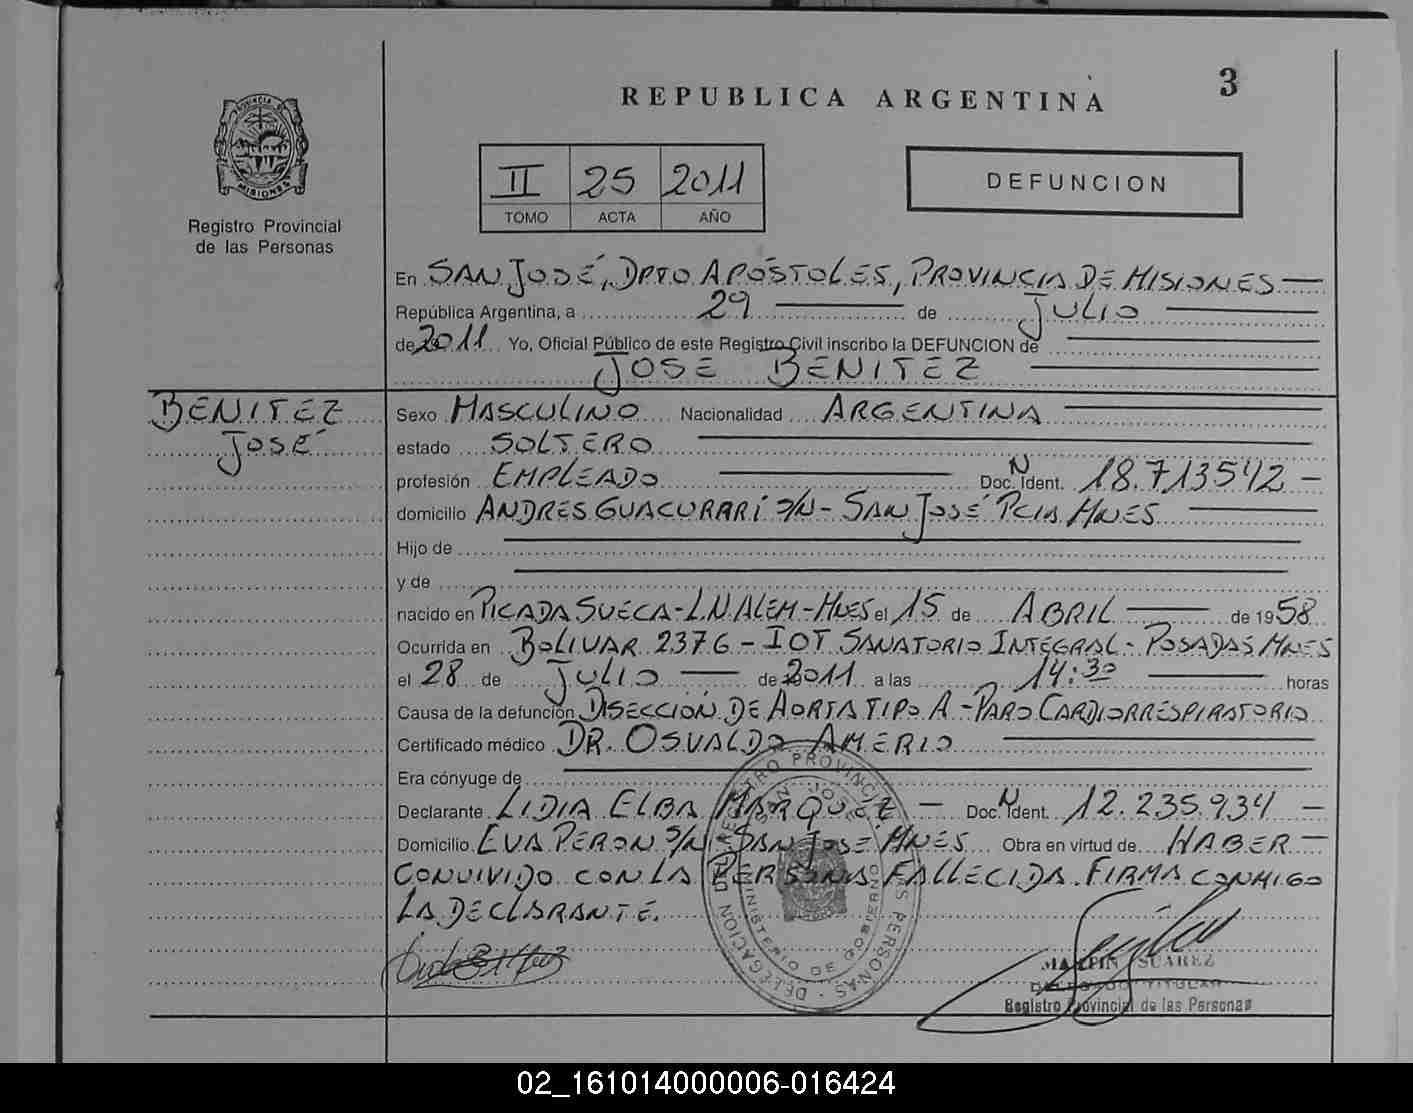 REPUBLICA ARGENTINA
3
PROVINCIA DE MISIONES
Registro Provincial
de las Personas
II 25 2011
TOMO ACTA AÑO
DEFUNCION
En SAN JOSÉ, DPTO APÓSTOLES, PROVINCIA DE MISIONES
República Argentina, a 29 de JULIO
de 2011 Yo, Oficial Público de este Registro Civil inscribo la DEFUNCION de
JOSE BENITEZ
BENITEZ
JOSÉ
Sexo MASCULINO Nacionalidad ARGENTINA
estado SOLTERO
profesión EMPLEADO Doc. N Ident. 18.713542 -
domicilio ANDRES GUACURARÍ S/N - SAN JOSÉ PCIA MNES
Hijo de
y de
nacido en PICADA SUECA - L.N. ALEM - MNES el 15 de ABRIL de 1958
Ocurrida en BOLIVAR 2376 - IOT SANATORIO INTEGRAL - POSADAS MNES
el 28 de JULIO de 2011 a las 14:30 horas
Causa de la defunción DISECCIÓN DE AORTA TIPO A - PARO CARDIORRESPIRATORIO
Certificado médico DR. OSVALDO AMERIO
Era cónyuge de
Declarante LIDIA ELBA MARQUEZ - Doc. N Ident. 12.235.934 -
Domicilio EVA PERON S/N SAN JOSE MNES Obra en virtud de HABER
CONVIVIDO CON LA PERSONA FALLECIDA. FIRMA CONMIGO
LA DECLARANTE.
DELEGACION DEL REGISTRO PROVINCIAL DE LAS PERSONAS
SAN JOSE
MINISTERIO DE GOBIERNO
MARTIN SUAREZ
DELEGADO TITULAR
Registro Provincial de las Personas
02_161014000006-016424